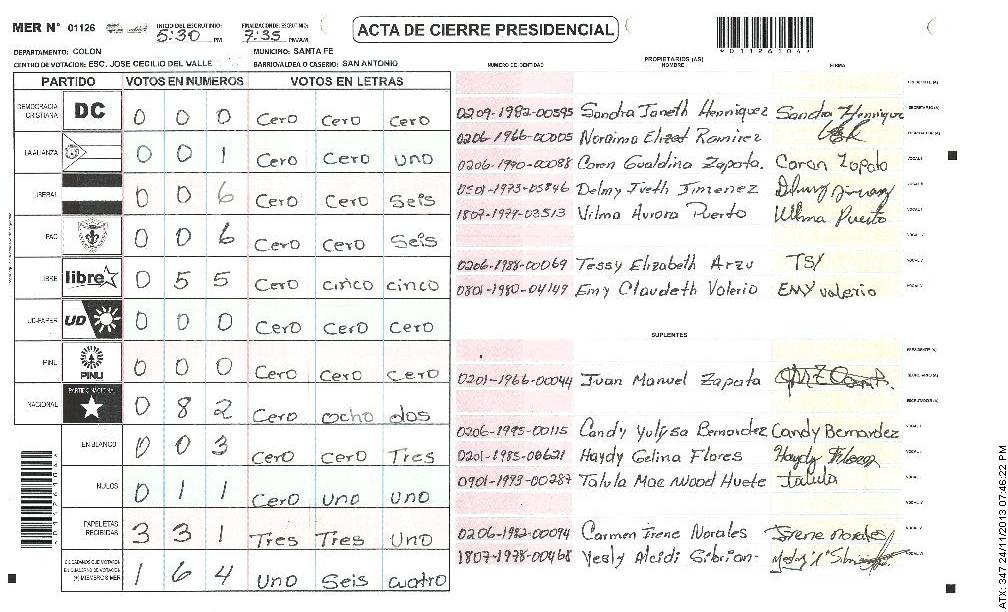 MER N° 01126
INICIO DEL ESCRUTINIO: 5:30 PM
FINALIZACION DE ESCRUTINIO: 7:35 PM/AM
ACTA DE CIERRE PRESIDENCIAL
DEPARTAMENTO: COLON
MUNICIPIO: SANTA FE
CENTRO DE VOTACION: ESC. JOSE CECILIO DEL VALLE
BARRIO/ALDEA O CASERIO: SAN ANTONIO
PARTIDO VOTOS EN NUMEROS VOTOS EN LETRAS
DEMOCRACIA CRISTIANA DC 0 0 0 Cero Cero Cero
LA ALIANZA 0 0 1 Cero Cero uno
LIBERAL 0 0 6 Cero Cero Seis
PAC 0 0 6 Cero Cero Seis
LIBRE libre 0 5 5 Cero cinco cinco
UD-FAPER UD 0 0 0 Cero Cero Cero
PINU PINU 0 0 0 Cero Cero Cero
NACIONAL PARTIDO NACIONAL 0 8 2 Cero ocho dos
EN BLANCO 0 0 3 Cero Cero Tres
NULOS 0 1 1 Cero uno uno
PAPELETAS RECIBIDAS 3 3 1 Tres Tres Uno
CIUDADANOS QUE VOTARON EN CUADERNO DE VOTACION (+) MIEMBROS MER 1 6 4 Uno Seis cuatro
PROPIETARIOS (AS)
NUMERO DE IDENTIDAD NOMBRE FIRMA
PRESIDENTE (A)
0209-1982-00595 Sandra Janeth Henriquez Sandra Henrique SECRETARIO (A)
0206-1966-00005 Noraima Elizet Ramirez ESCRUTADOR (A)
0206-1990-00088 Coren Gualdina Zapata. Caran Zapata VOCAL I
0501-1973-05846 Delmy Iveth Jimenez VOCAL II
1807-1979-03513 Vilma Aurora Puerto Wilma Puerto
0206-1988-00069 Tessy Elizabeth Arzu TSY
0801-1980-04149 Emy Claudeth Valerio EMY valerio
SUPLENTES
PRESIDENTE (A)
0201-1966-00044 Juan Manuel Zapata SECRETARIO (A)
ESCRUTADOR (A)
0206-1995-00115 Candy Yulissa Bernardez Candy Bernardez
0201-1985-00621 Haydy Gelina Flores Haydy Flores
0901-1993-00287 Talula Mac Nood Huete Talula
0206-1982-00094 Carmen Irene Norales Irene norales
1807-1978-00468 Yesly Alcidi Sibrian-
ATX: 347 24/11/2013 07:46:22 PM